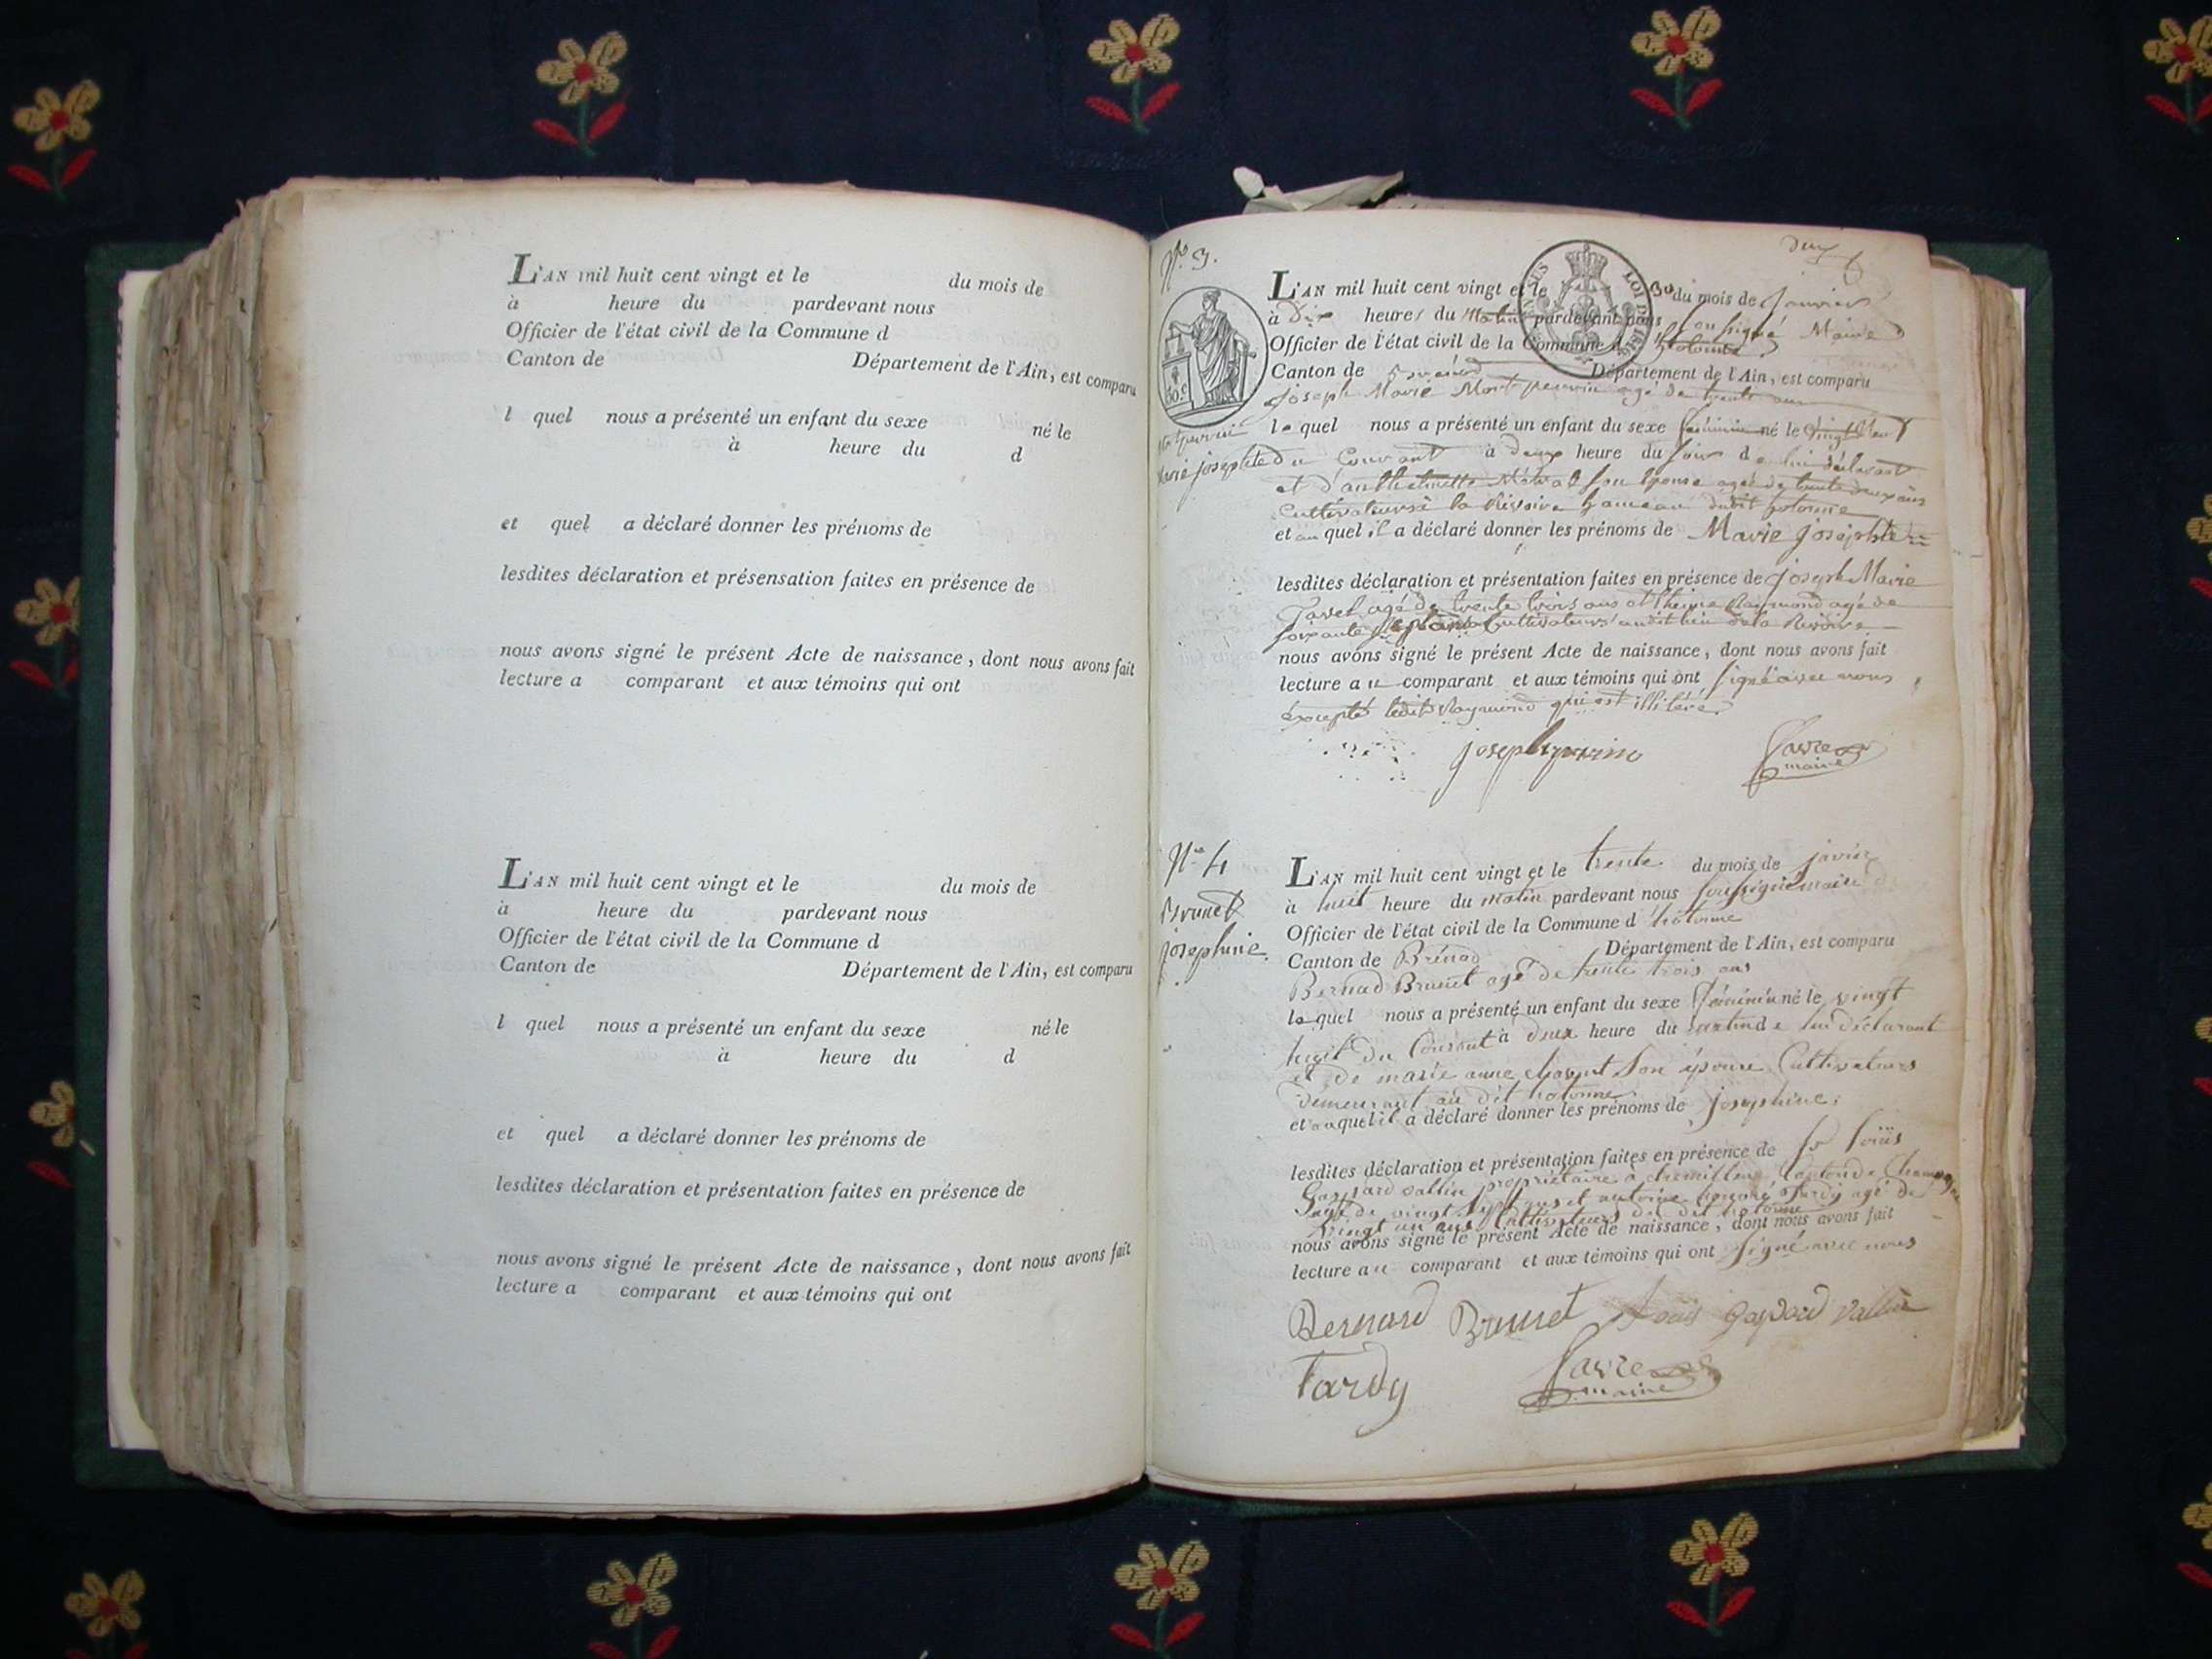 L'AN mil huit cent vingt et le du mois de
à heure du pardevant nous
Officier de l'état civil de la Commune d
Canton de Département de l'Ain, est comparu
l quel nous a présenté un enfant du sexe né le
à heure du d
et quel a déclaré donner les prénoms de
lesdites déclaration et présensation faites en présence de
nous avons signé le présent Acte de naissance, dont nous avons fait
lecture a comparant et aux témoins qui ont
L'AN mil huit cent vingt et le du mois de
à heure du pardevant nous
Officier de l'état civil de la Commune d
Canton de Département de l'Ain, est comparu
l quel nous a présenté un enfant du sexe né le
à heure du d
et quel a déclaré donner les prénoms de
lesdites déclaration et présentation faites en présence de
nous avons signé le présent Acte de naissance, dont nous avons fait
lecture a comparant et aux témoins qui ont
deux
N° 3.
L'AN mil huit cent vingt et le 30 du mois de Janvier
à dix heures du Matin pardevant nous soussigné Maire
Officier de l'état civil de la Commune d hotonne
Canton de Brénod Département de l'Ain, est comparu
Joseph Marie agé de trente ans
le quel nous a présenté un enfant du sexe féminin né le vingt neuf
Marie josephte
du Courant à deux heure du soir de lui déclarant
et d'anthelmette son épouse agée de trente deux ans
Cultivateurs à la Rivoire hameau dudit hotonne
et au quel il a déclaré donner les prénoms de Marie Josephte
lesdites déclaration et présentation faites en présence de Joseph Marie
agé de trente trois ans et Raymond agé de
soixante Cultivateurs audit lieu de la Rivoire
nous avons signé le présent Acte de naissance, dont nous avons fait
lecture au comparant et aux témoins qui ont signé avec nous
excepté ledit Raymond qui est illiteré.
maire
N° 4
Brunet
josephine.
L'AN mil huit cent vingt et le trente du mois de javier
à huit heure du matin pardevant nous soussigné maire
Officier de l'état civil de la Commune d hotonne
Canton de Brénod Département de l'Ain, est comparu
Bernad Brunet agé de trente trois ans
le quel nous a présenté un enfant du sexe féminin né le vingt
huit du Courant à deux heure du matin de lui déclarant
et de marie anne son épouse Cultivateurs
demeurant au dit hotonne
et auquel il a déclaré donner les prénoms de josephine.
lesdites déclaration et présentation faites en présence de Sr louis
Gaspard vallin propriétaire à Canton de
agé de vingt sept ans et antoine tardy agé de
vingt un ans Cultivateurs du dit hotonne
nous avons signé le présent Acte de naissance, dont nous avons fait
lecture au comparant et aux témoins qui ont signé avec nous
Bernard Brunet Louis Gaspard Vallin
Tardy
maire